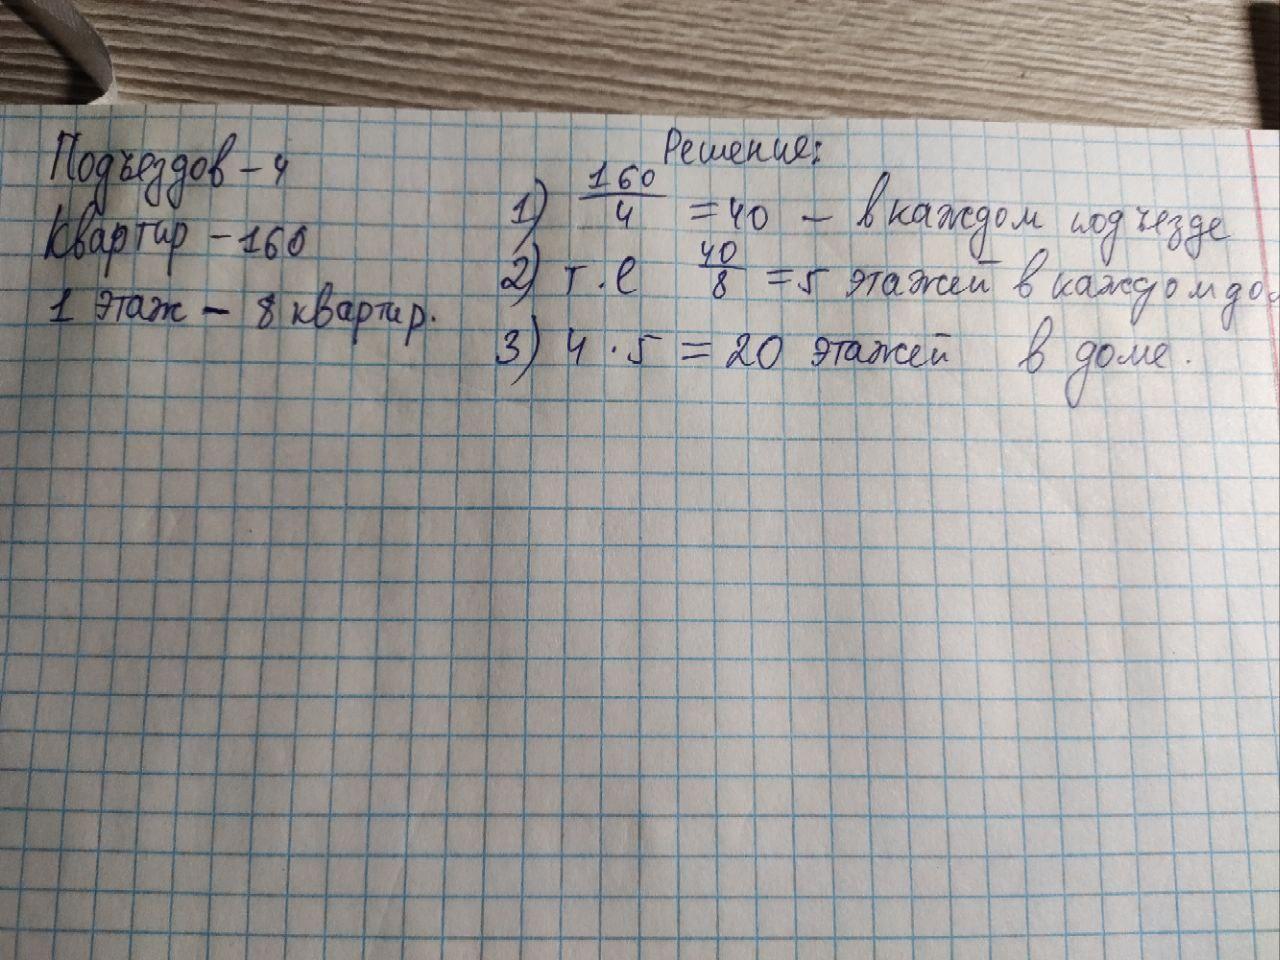 Подъездов - 4
Квартир - 160
1 этаж - 8 квартир.
Решение:
1) 160/4 = 40 - в каждом подъезде
2) т.е 40/8 = 5 этажей в каждом до
3) 4 · 5 = 20 этажей в доме.